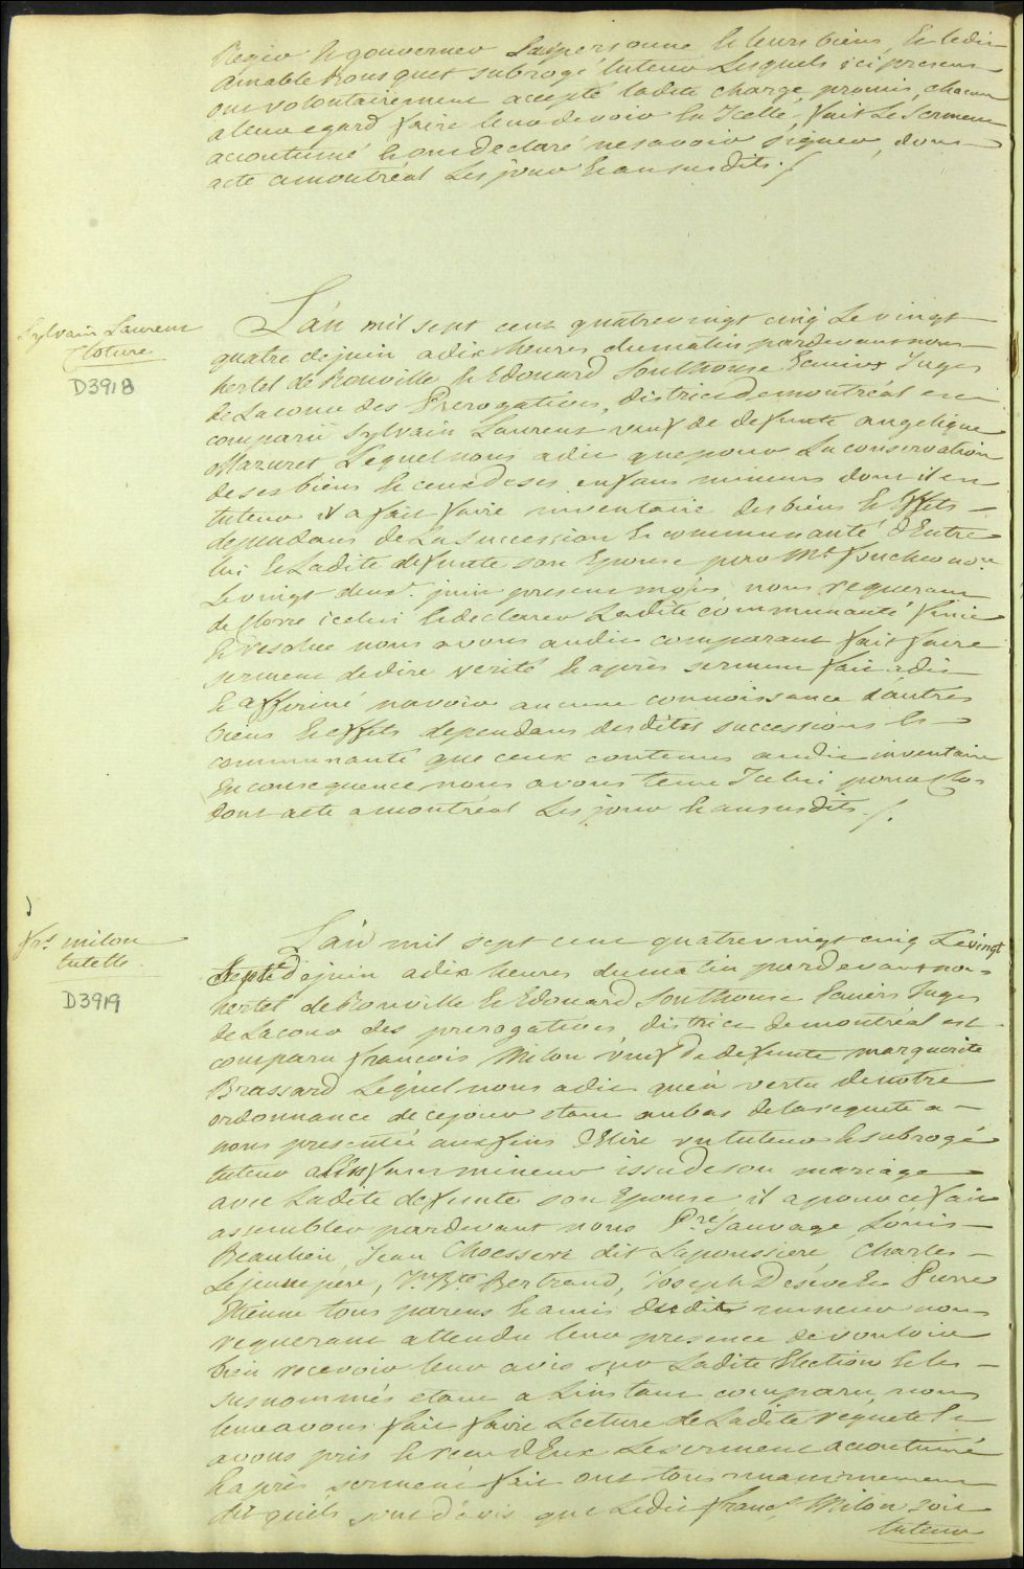 Regir & gouverner La personne & leurs biens, & ledit
amable Rousquet subrogé tuteur Lesquels ici presens
ont volontairement accepté ladite charge, promis, chacun
a leur egard faire leur devoir En Icelle, fait Le Serment
accoutumé & ont declaré ne savoir signer, dont
acte a montréal Les jour & an susdits ./.
Sylvain Laurent
Cloture
D3918
L'an mil sept cent quatrevingt cinq Le vingt
quatre de juin a dix heures du matin pardevant nous
hertel de Rouville & Edouard Southouse Ecuiers Juges
de La cour des Prerogatives, district de montréal est
comparu Sylvain Laurent veuf de defunte angelique
Mazuret Lequel nous a dit que pour La conservation
de ses biens & ceux de ses enfans mineurs dont il est
tuteur il a fait faire inventaire des biens & Effets
dependans de La Succession & communauté d'Entre
lui & Ladite defunte son Epouse par Mt. foucher nore.
Le vingt deux juin present mois, nous requerant
de clorre icelui & declarer Ladite communauté finie
& resolue nous avons audit comparant fait faire
serment de dire verité & après serment fait a dit
& affirmé n'avoir aucune connoissance d'autres
biens & effets dependans desdites successions &
communauté que ceux contenus audit inventaire
En consequence nous avons tenu Icelui pour clos
dont acte a montréal Les jour & an susdits ./.
frs. milon
tutelle
D3919
L'an mil sept cent quatrevingt cinq Le vingt
Septe de juin a dix heures du matin pardevant nous
hertel de Rouville & Edouard Southouse Ecuiers Juges
de La cour des prerogatives, district de montréal est
comparu francois Milon veuf de defunte marguerite
Brassard Lequel nous a dit qu'en vertu de notre
ordonnance de ce jour etant au bas de la requete a
nous presentée aux fins d'Elire un tuteur & subrogé
tuteur a L'Enfant mineur issu de son mariage
avec Ladite defunte son Epouse il a pour ce fait
assembler pardevant nous Pre. Sauvage, Louis
Beaulieu, Jean Choessere dit Lapoussiere, Charles
Lejeune pere, Jn. Bte. Bertrand, Joseph Deseve & Pierre
Etienne tous parens & amis dudit mineur nous
requerant attendu leur presence de vouloir
bien recevoir leur avis sur Ladite Election & les
susnommés etant a L'instant comparu, nous
leur avons fait faire Lecture de Ladite requete &
avons pris & recu d'Eux Le serment accoutumé
& après serment fait ont tous unanimement
dit qu'ils sont d'avis que Ledit frans. Milon soit
tuteur